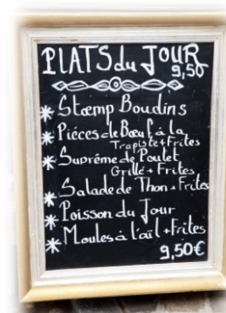 PLATS du JOUR
9,50
* Stœmp Boudins
* Piéces de Bœuf à la
Trapiste + Frites
* Supréme de Poulet
Grillé + Frites
* Salade de Thon + Frites
* Poisson du Jour
* Moules à l'aïl + Frites
9,50€